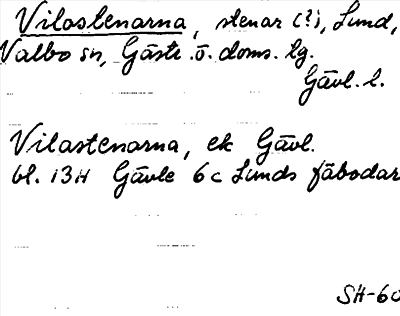 Vilostenarna, stenar (?), Lund,
Valbo sn, Gästr. ö. doms. tg.
Gävl. l.
Vilastenarna, ek Gävl.
bl. 13H Gävle 6c Lunds fäbodar
SH-60